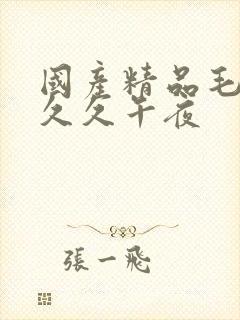 國產精品毛
久久午夜
張一飛